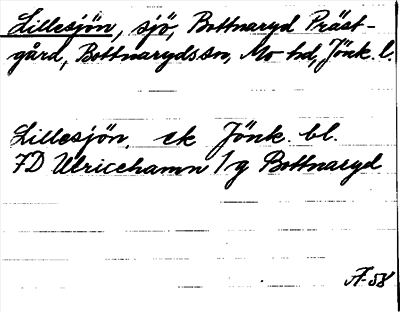 Lillesjön, sjö, Bottnaryd Präst-
gård, Bottnaryds sn, Mo hd, Jönk. l.
Lillesjön. ek Jönk. bl.
7D Ulricehamn 1g Bottnaryd
AF-58